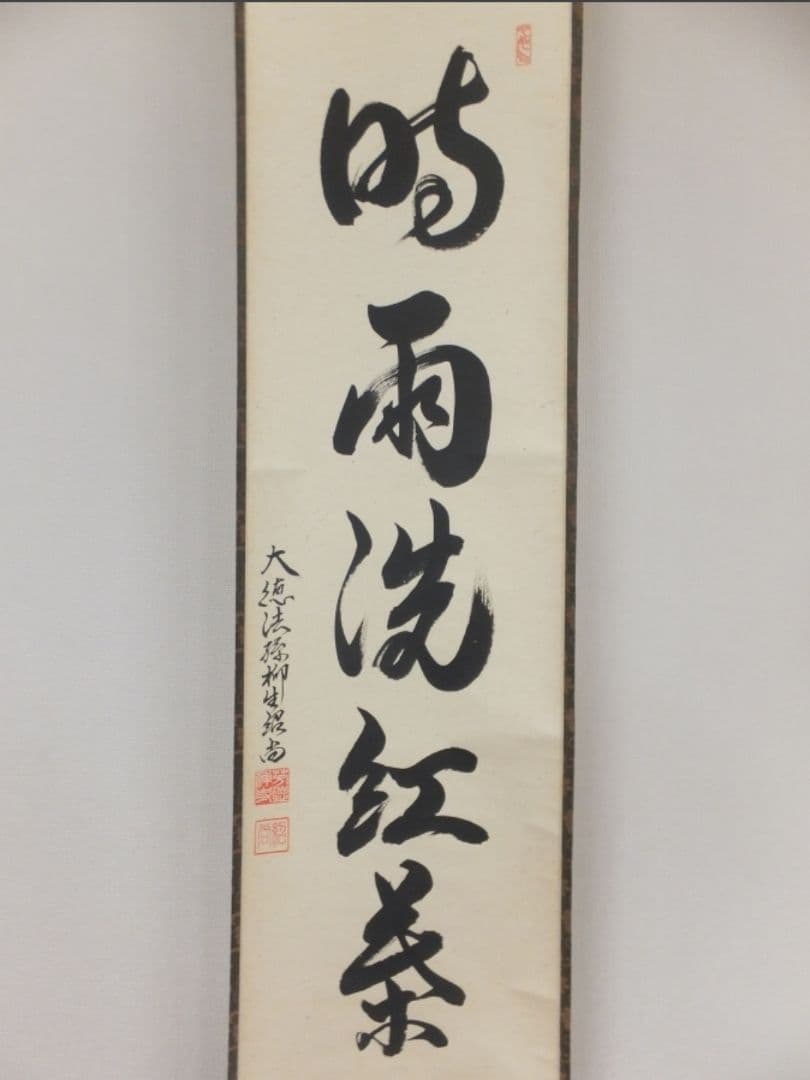 時雨洗紅葉
大徳法孫柳生紹尚
紹尚